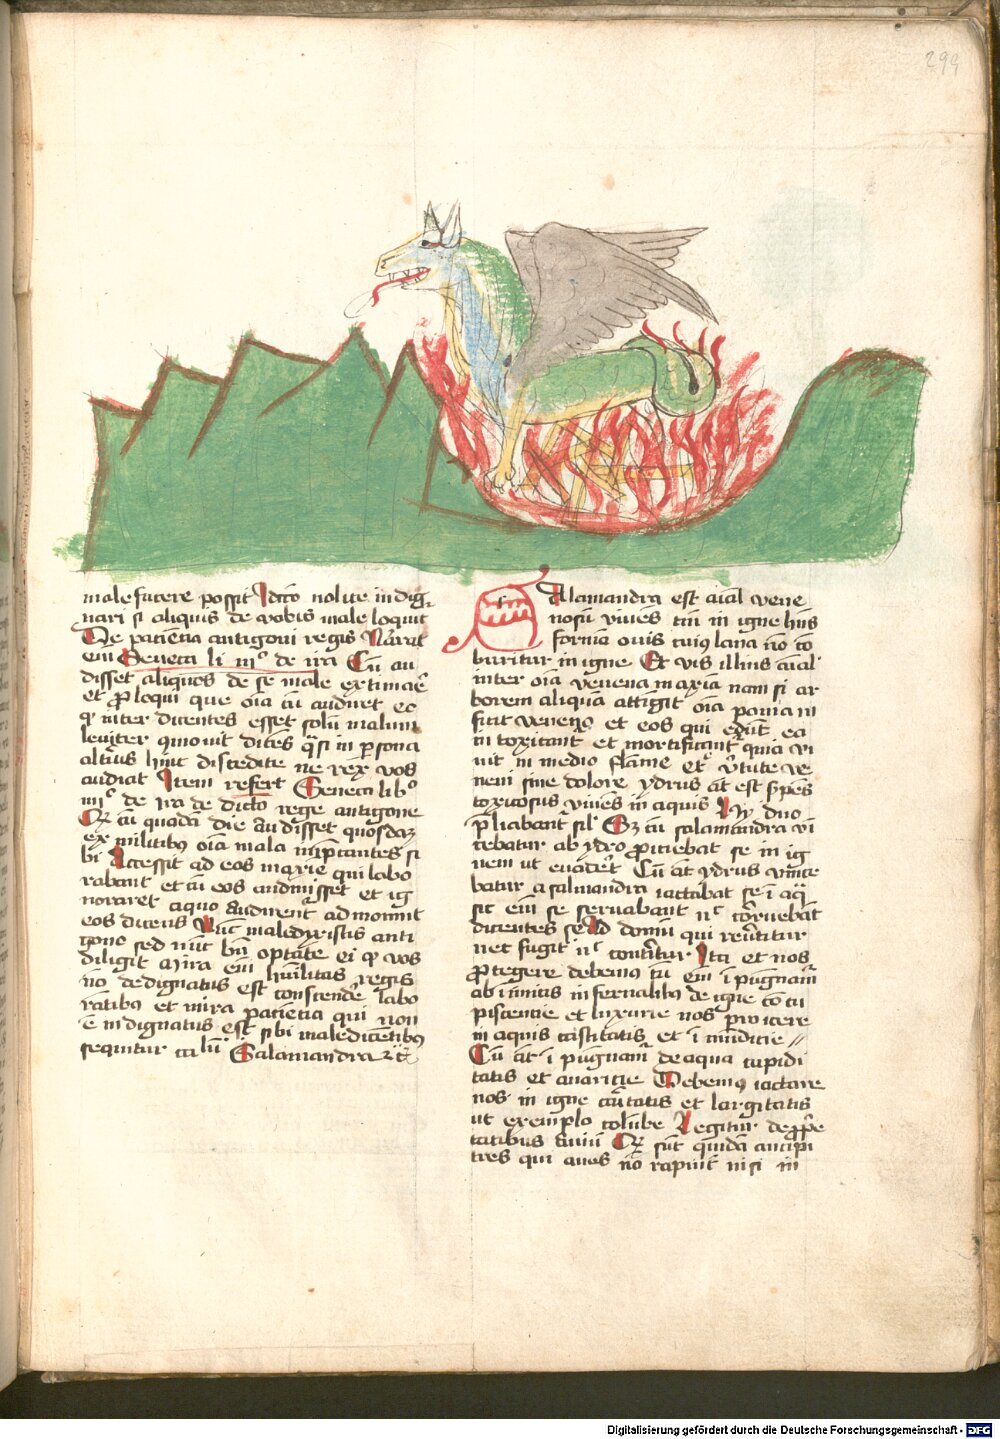 299
male facere possit Idcō nolite indig
nari si aliquis de vobis male loquit̄
De patiēcia antigoni regis Narrat
em̄ Seneca li iiiᵒ de ira Cū au
disset aliquos de se male extimāē
et ploqui que oīa cū audiret ec
qꝫ inter dicentes esset solū malum
leviter qmovit dicēs q̄si in psona
altius hinc discedite ne rex vos
audiat Item refert Seneca libᵒ
iiiᵒ de ira de dicto rege antigone
Qꝫ cū quadā die audisset quosdaꝫ
ex militibꝰ oīa mala imp̄cantes si
bi Accessit ad eos maxīe qui labo
rabant et cū eos audivisset et ig
noraret a quo audirent ad monuit
eos dicens Nūc maledixistis anti
gono sed nūc bn̄ optate ei qꝫ vos
diligit Mira em̄ hūilitas regis
nō dedignatus est conscendē labo
rātibus et mira patiencia qui non
ē indignatus est sibi maledicentibꝰ
sequitur talū Salamandra ꝛc̄
Salamandra est aīal vene
nosū vivēs tm̄ in igne hn̄s
forma ovis cuiꝰ lana nō cō
buritur in igne Et vis illius aīal'
inter oīa venena maxīa nam si ar
borem aliquā attigit oīa poma in
ficit veneno et eos qui edūt ea
intoxicant et mortificant quia vi
vit in medio flamme et vtute ve
neni sine dolore ydrus āt est spēs
toxicosus vivēs in aquis Hij duo
pliabant̄ sil' Qꝫ cū salamandra vī
cebatur ab ydro piciebat se in ig
nem ut evaderet Cū āt ydrus vince
batur a salmandra iactabat se ī aq̄
sic em̄ se servabant nᶜ cōruebāt
dicentes se Ad domū qui revtitur
nec fugit nᶜ contritur Ita et nos
ptegere debemus cū em̄ ī pugnam̄
ab inimicis infernalibꝰ de igne cōcu
piscentie et luxurie nos proicere
in aquis castitatis et ī mūdicie //
Cū āt ī pugnam̄ de aqua cupidi
tatis et avaricie Debemꝰ iactare
nos in igne caritatis et largitatis
ut exemplo colūbe Legitur de ꝓpe
tatibus aviū Qꝫ sūt quidā ancipi
tres qui aves nō rapiūt nisi in
Digitalisierung gefördert durch die Deutsche Forschungsgemeinschaft - DFG